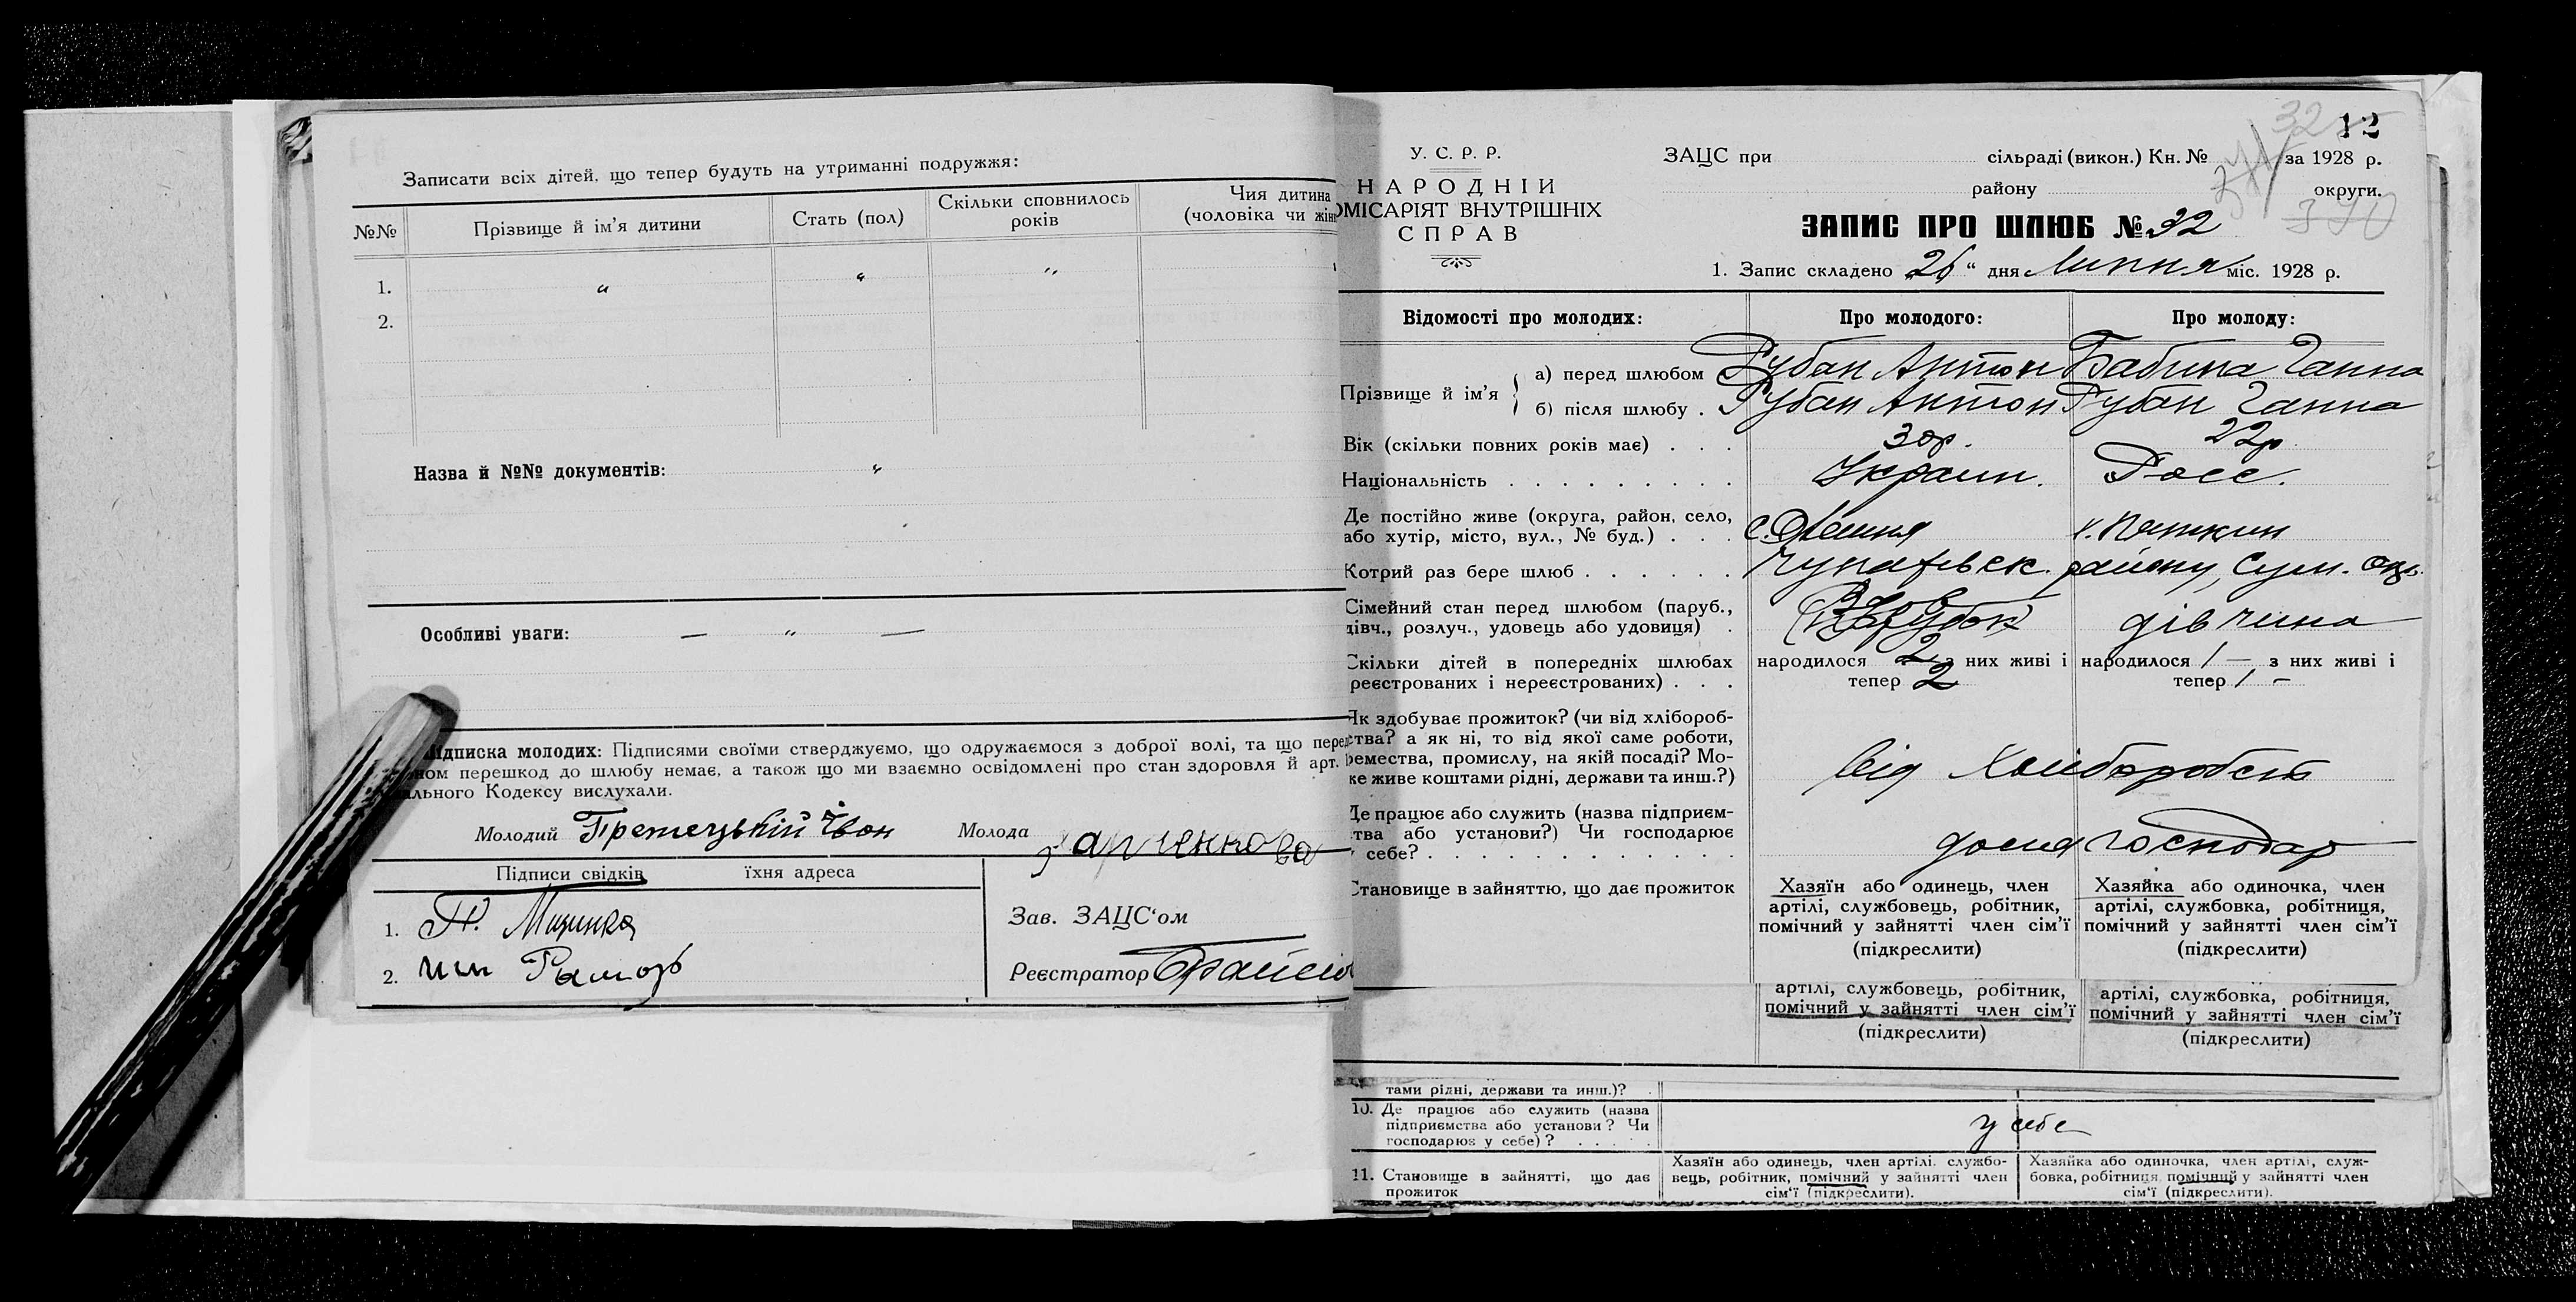 Записати всіх дітей, що тепер будуть на утриманні подружжя:
№№ Прізвище й ім'я дитини Стать (пол) Скільки сповнилось років Чия дитина (чоловіка чи жін
1. " " "
2.
Назва й №№ документів: "
Особливі уваги: — " —
ідписка молодих: Підписями своїми стверджуємо, що одружаємося з доброї волі, та що перед
ном перешкод до шлюбу немає, а також що ми взаємно освідомлені про стан здоровля й арт.
ального Кодексу вислухали.
Молодий Молода
Підписи свідків їхня адреса
1.
2.
Зав. ЗАЦС'ом
Реєстратор
12
32
У. С. Р. Р.
НАРОДНІЙ
ОМІСАРІЯТ ВНУТРІШНІХ
СПРАВ
ЗАЦС при сільраді (викон.) Кн. № за 1928 р.
району округи.
ЗАПИС ПРО ШЛЮБ № 32
1. Запис складено 26 " дня Липня міс. 1928 р.
Відомості про молодих: Про молодого: Про молоду:
Прізвище й ім'я
а) перед шлюбом Рубан Антон Бабина Ганна
б) після шлюбу . Рубан Антон Рубан Ганна
Вік (скільки повних років має) . . . 30р. 22р.
Національність . . . . . . . . . Украин. Росс.
Де постійно живе (округа, район, село,
або хутір, місто, вул., № буд.) . . .
Котрий раз бере шлюб . . . . . . району, Сум. окр.
Сімейний стан перед шлюбом (паруб.,
дівч., розлуч., удовець або удовиця) . дівчина
Скільки дітей в попередніх шлюбах
реєстрованих і нереєстрованих) . . .
народилося 2 з них живі і тепер 2
народилося / — з них живі і тепер / —
Як здобуває прожиток? (чи від хлібороб-
ства? а як ні, то від якої саме роботи,
ремества, промислу, на якій посаді? Мо-
же живе коштами рідні, держави та инш.?)
від Хліборобств
Де працює або служить (назва підприєм-
ства або установи?) Чи господарює
у себе? . . . . . . . . . . . .
дома господар
Становище в зайняттю, що дає прожиток
Хазяїн або одинець, член
артілі, службовець, робітник,
помічний у зайнятті член сім'ї
(підкреслити)
Хазяйка або одиночка, член
артілі, службовка, робітниця,
помічний у зайнятті член сім'ї
(підкреслити)
артілі, службовець, робітник,
помічний у зайнятті член сім'ї
(підкреслити)
артілі, службовка, робітниця,
помічний у зайнятті член сім'ї
(підкреслити)
тами рідні, держави та инш.)?
10. Де працює або служить (назва
підприємства або установи? Чи
господарює у себе)? . . . . .
у себе
11. Становище в зайнятті, що дає
прожиток
Хазяїн або одинець, член артілі, службо-
вець, робітник, помічний у зайнятті член
сім'ї (підкреслити).
Хазяйка або одиночка, член артілі, служ-
бовка, робітниця, помічний у зайнятті член
сім'ї (підкреслити).